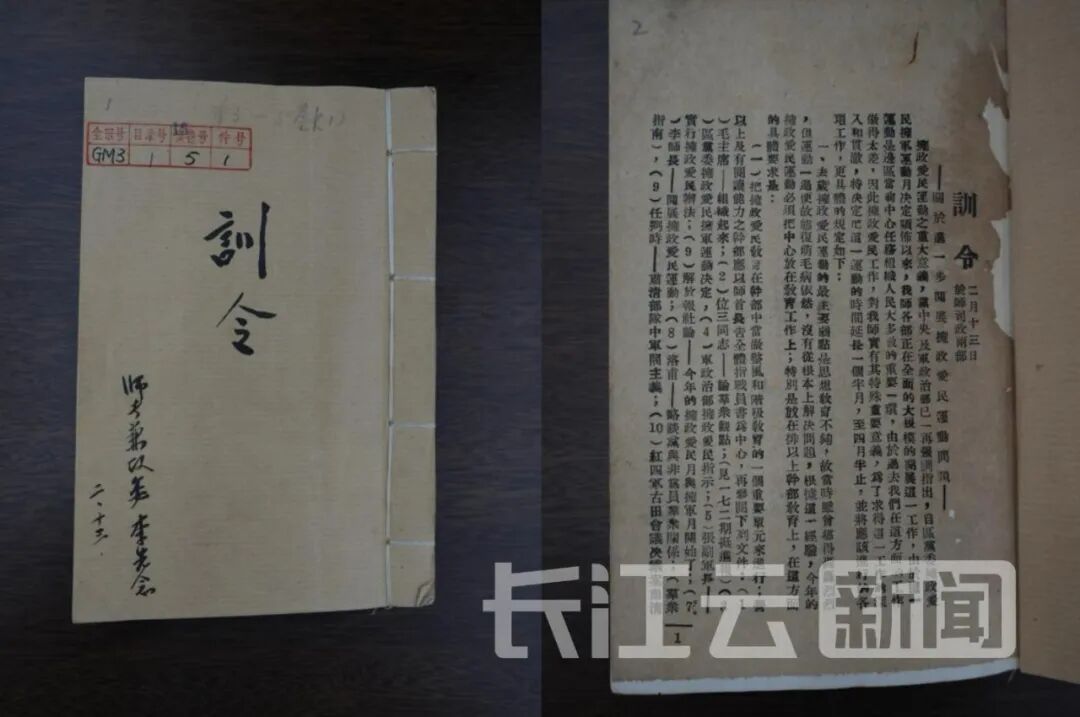 1
全宗号 目录号 案卷号 件号
GM3 1 5 1
訓令
师长兼政委 李先念
二·十三·
2
訓令
二月十三日
於師司政兩部
——關於進一步開展擁政愛民運動問題——
擁政愛民運動之重大意義，黨中央及軍政治部已一再强調指出，自區黨委擁政愛
民擁軍運動月決定頒佈以來，我師各部正在全面的大規模的開展這一工作，由於
運動是邊區當前中心任務組織人民大多數的重要一環，由於過去我們在這方面工作
做得太差，因此擁政愛民工作，對我師實有其特殊重要意義，爲了求得這一工作的深
入和貫澈，特決定把這一運動的時間延長一個半月，至四月半止，並將應該進行各
項工作，更具體的規定如下：
一、去歲擁政愛民運動的最主要弱點是思想教育不夠，故當時雖曾搞得轟轟烈烈
，但運動一過便故態復萌毛病依然，沒有從根本上解決問題，根據這一經驗，今年的
擁政愛民運動必須把中心放在教育工作上；特別是放在排以上幹部教育上，在這方面
的具體要求是：
（一）把擁政愛民教育在幹部中當做整風和階級教育的一個重要單元來進行；
以上及有閱讀能力之幹部應以師首長告全體指戰員書爲中心，再參閱下列文件：
毛主席——組織起來；（2）位三同志——論羣衆觀點；（見一七二期挺進報）
區黨委擁政愛民擁軍運動決定，（4）軍政治部擁政愛民指示；（5）張副軍長——
實行擁政愛民辦法；（9）解放報社論——今年的擁政愛民月與擁軍月開始了；（7
）李師長——開展擁政愛民運動；（8）洛甫——略談黨與非黨員羣衆關係，（羣衆
指南），（9）任弼時——肅清部隊中軍閥主義；（10）紅四軍古田會議決議
1
长江云 新闻